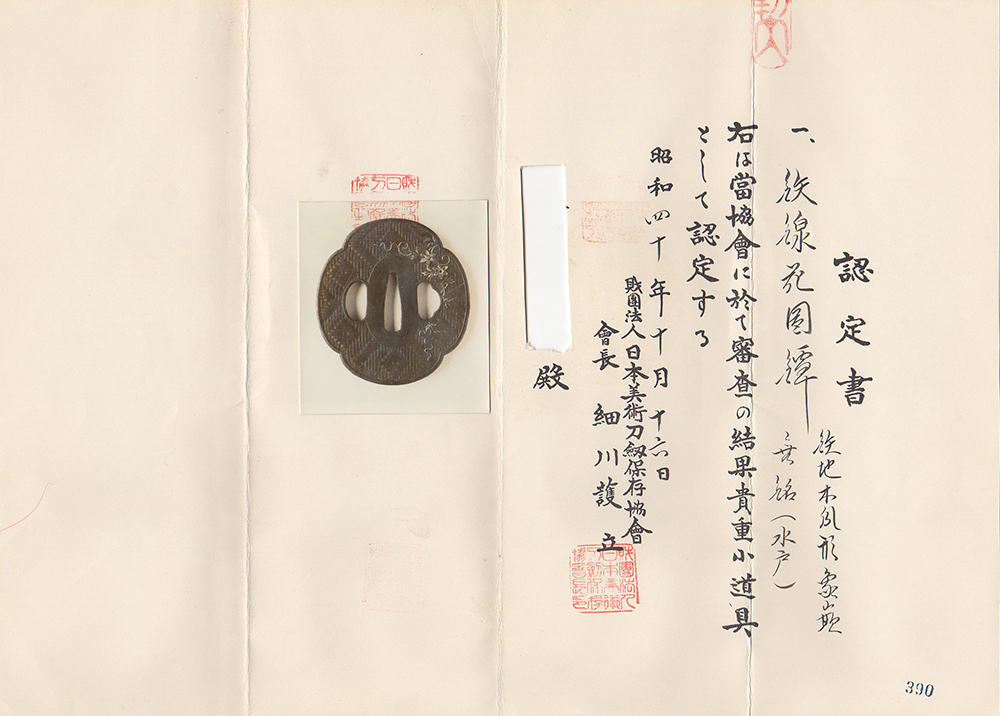 認定書
一、鉄線花図鐔
鉄地木瓜形象嵌
無銘(水戸)
右は當協會に於て審査の結果貴重小道具
として認定する
昭和四十年十月十六日
財團法人日本美術刀剱保存協會
會長 細川護立
殿
財團法人日本美術刀剱保存協會長印
390